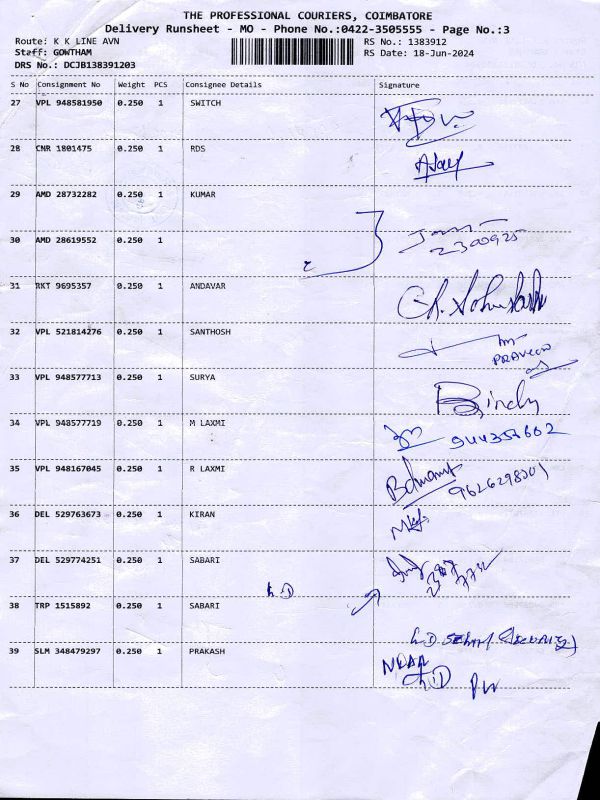 THE PROFESSIONAL COURIERS, COIMBATORE
Delivery Runsheet - MO - Phone No.:0422-3505555 - Page No.:3
Route: K K LINE AVN
Staff: GOWTHAM
DRS No.: DCJB138391203
RS No.: 1383912
RS Date: 18-Jun-2024
S No Consignment No Weight PCS Consignee Details Signature
27 VPL 948581950 0.250 1 SWITCH
28 CNR 1801475 0.250 1 RDS
29 AMD 28732282 0.250 1 KUMAR
30 AMD 28619552 0.250 1
31 RKT 9695357 0.250 1 ANDAVAR
32 VPL 521814276 0.250 1 SANTHOSH
PRAVEEN
33 VPL 948577713 0.250 1 SURYA
Bindy
34 VPL 948577719 0.250 1 M LAXMI
35 VPL 948167045 0.250 1 R LAXMI
36 DEL 529763673 0.250 1 KIRAN
37 DEL 529774251 0.250 1 SABARI
38 TRP 1515892 0.250 1 SABARI
39 SLM 348479297 0.250 1 PRAKASH